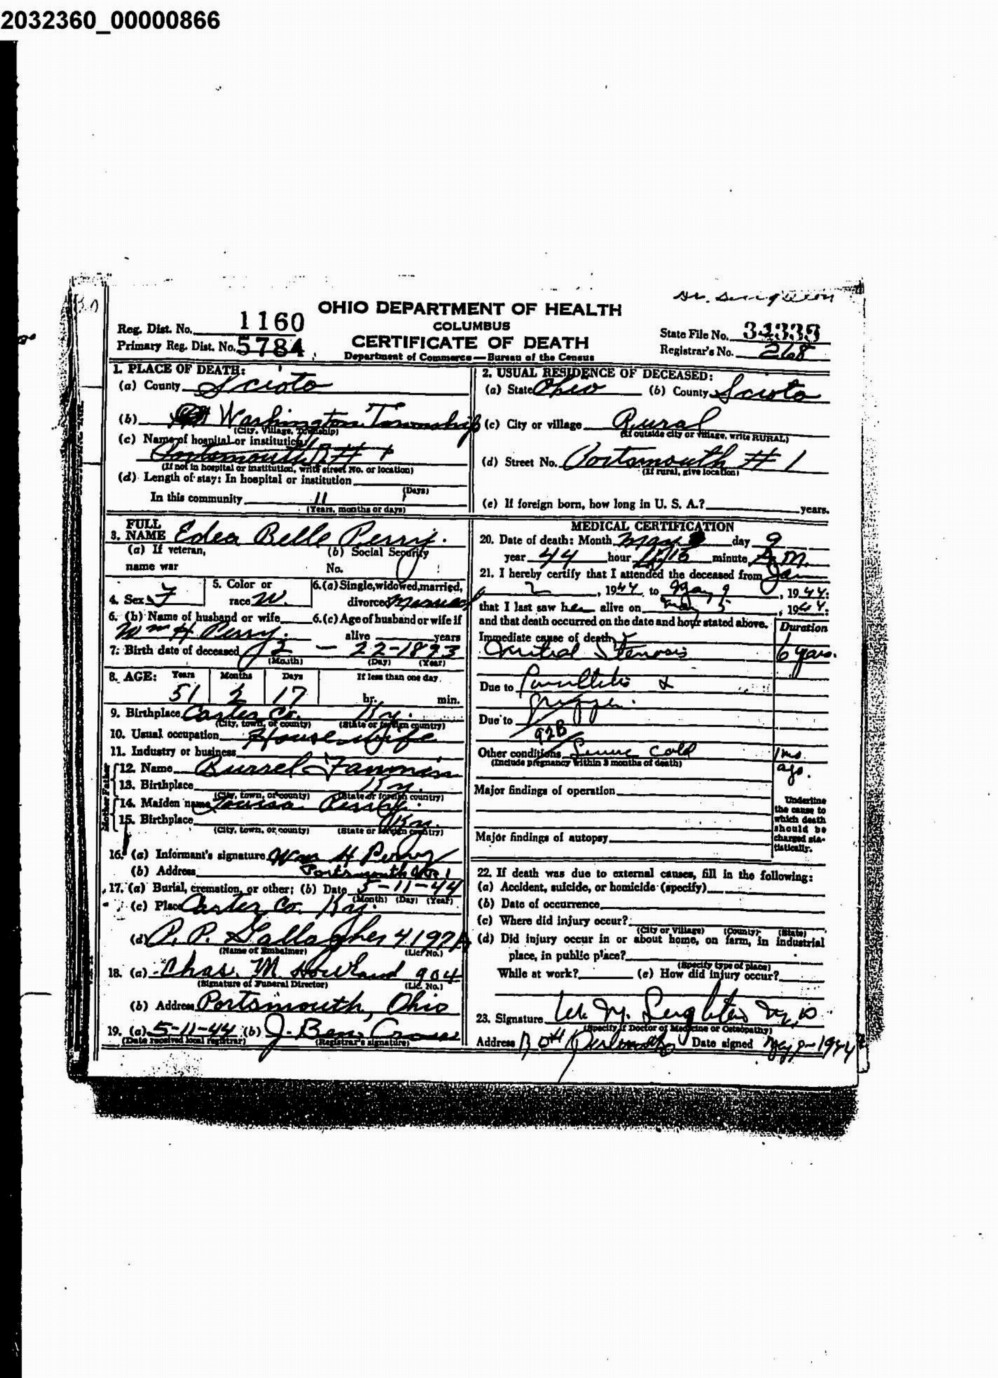 2032360_00000866
OHIO DEPARTMENT OF HEALTH
COLUMBUS
CERTIFICATE OF DEATH
Department of Commerce—Bureau of the Census
Reg. Dist. No. 1160
Primary Reg. Dist. No. 5784
State File No. 34339
Registrar's No. 268
1. PLACE OF DEATH:
(a) County Scioto
(b) Washington Township
(City, Village, Township)
(c) Name of hospital or institution
Portsmouth R # 1
(If not in hospital or institution, write street No. or location)
(d) Length of stay: In hospital or institution
(Days)
In this community 11
(Years, months or days)
2. USUAL RESIDENCE OF DECEASED:
(a) State Ohio (b) County Scioto
(c) City or village Rural
(If outside city or village, write RURAL)
(d) Street No. Portsmouth # 1
(If rural, give location)
(e) If foreign born, how long in U. S. A.? years.
3. FULL NAME Edea Belle Perry.
(a) If veteran, name war
(b) Social Security No.
4. Sex F
5. Color or race W.
6. (a) Single, widowed, married, divorced Married
6. (b) Name of husband or wife
Wm H. Perry.
6. (c) Age of husband or wife if alive years
7. Birth date of deceased 2 — 22-1893
(Month) (Day) (Year)
8. AGE: Years Months Days If less than one day
51 2 17 hr. min.
9. Birthplace Carter Co. Ky.
(City, town, or county) (State or foreign country)
10. Usual occupation Housewife
11. Industry or business
Father
12. Name Russel Fannin
13. Birthplace Ky.
(City, town, or county) (State or foreign country)
Mother
14. Maiden name
15. Birthplace Ky.
(City, town, or county) (State or foreign country)
16. (a) Informant's signature Wm H Perry
(b) Address Portsmouth 1
17. (a) Burial, cremation, or other; (b) Date 5-11-44
(Month) (Day) (Year)
(c) Place Carter Co. Ky.
(d) P. P. Gallagher 4197A
(Name of Embalmer) (Lic. No.)
18. (a) Chas. M. Howland 904
(Signature of Funeral Director) (Lic. No.)
(b) Address Portsmouth, Ohio
19. (a) 5-11-44 (b) J. Ben
(Date received local registrar) (Registrar's signature)
MEDICAL CERTIFICATION
20. Date of death: Month May day 9
year 44 hour minute A.M.
21. I hereby certify that I attended the deceased from Jan
2, 1944, to May 9, 1944;
that I last saw her alive on May 5, 1944;
and that death occurred on the date and hour stated above.
Duration
Immediate cause of death
Stenosis 6 years.
Due to
Due to
92B
Other conditions cold 1 mo. ago.
(Include pregnancy within 3 months of death)
Major findings of operation
Major findings of autopsy
Underline the cause to which death should be charged statistically.
22. If death was due to external causes, fill in the following:
(a) Accident, suicide, or homicide (specify)
(b) Date of occurrence
(c) Where did injury occur?
(City or Village) (County) (State)
(d) Did injury occur in or about home, on farm, in industrial place, in public place?
(Specify type of place)
While at work? (e) How did injury occur?
23. Signature
(Specify if Doctor of Medicine or Osteopathy)
Address Date signed